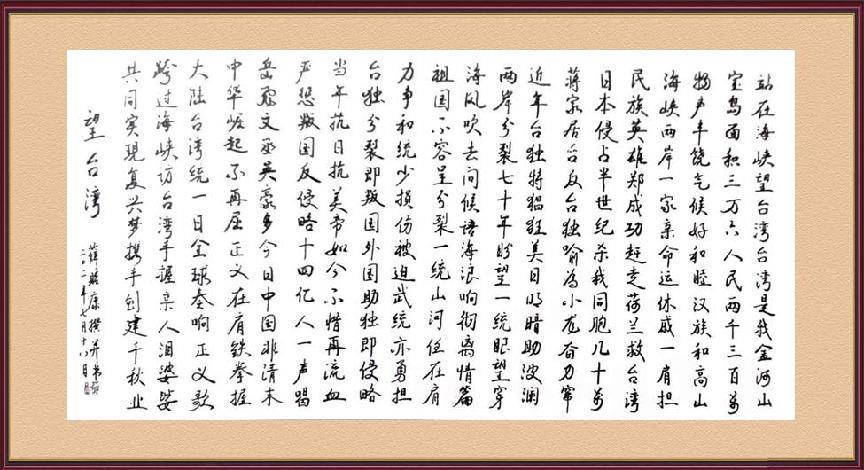 站在海峡望台湾台湾是我金河山
宝岛面积三万六人民两千三百万
物产丰饶气候好和睦汉族和高山
海峡两岸一家亲命运休戚一肩担
民族英雄郑成功赶走荷兰救台湾
日本侵占半世纪杀我同胞几十万
蒋家居台反台独喻为小龙奋力窜
近年台独特猖狂美日明暗助波澜
两岸分裂七十年盼望一统眼望穿
海风吹去问候语海浪响彻离情篇
祖国不容呈分裂一统山河任在肩
力争和统少损伤被迫武统亦勇担
台独分裂即叛国外国助独即侵略
当年抗日抗美帝如今不惜再流血
严惩叛国反侵略十四亿人一声喝
岳飞文丞英豪多今日中国非清末
中华崛起不再屈正义在肩铁拳握
大陆台湾统一日全球奏响正义歌
跨过海峡访台湾手握亲人泪婆娑
共同实現复兴梦携手创建千秋业
望台湾
康撰并书
二〇二一年七月十八日